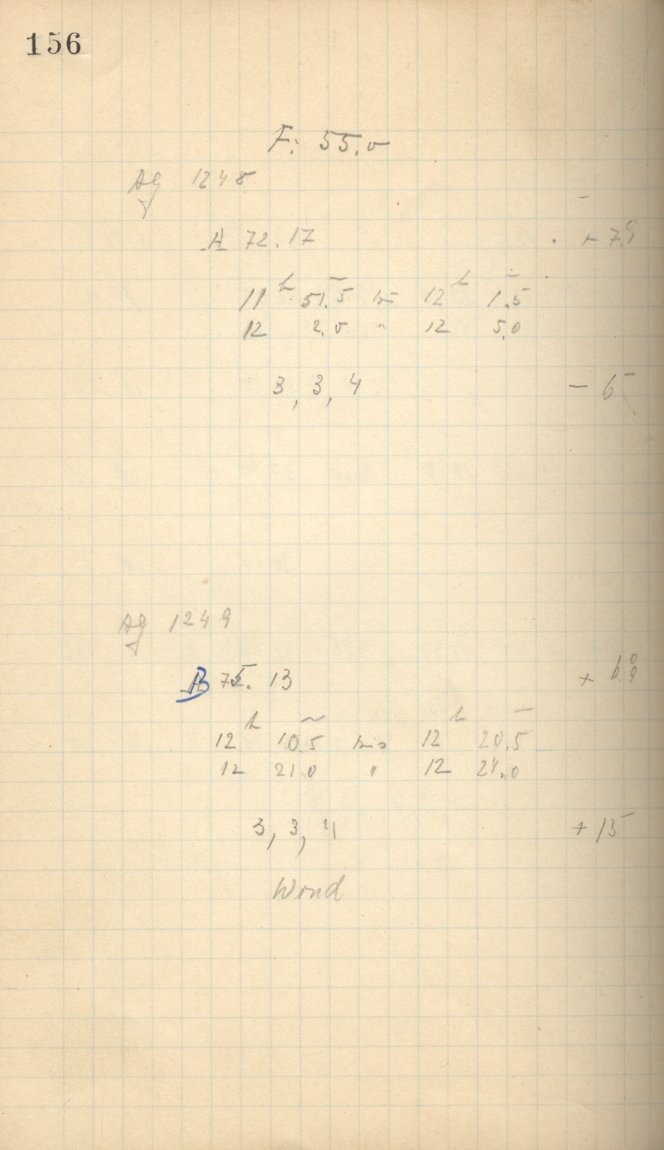 156
F: 55.0
AG 1248
A 72.17 + 7.°1
11 h 51.5 m bis 12 h 1.5 m
12 2.0 " 12 5.0
3, 3, 4 - 6
AG 1249
B 75. 13 + 6.°9
12 h 10.5 m bis 12 h 20.5 m
12 21.0 " 12 24.0
3, 3, 4 + 15
Wind